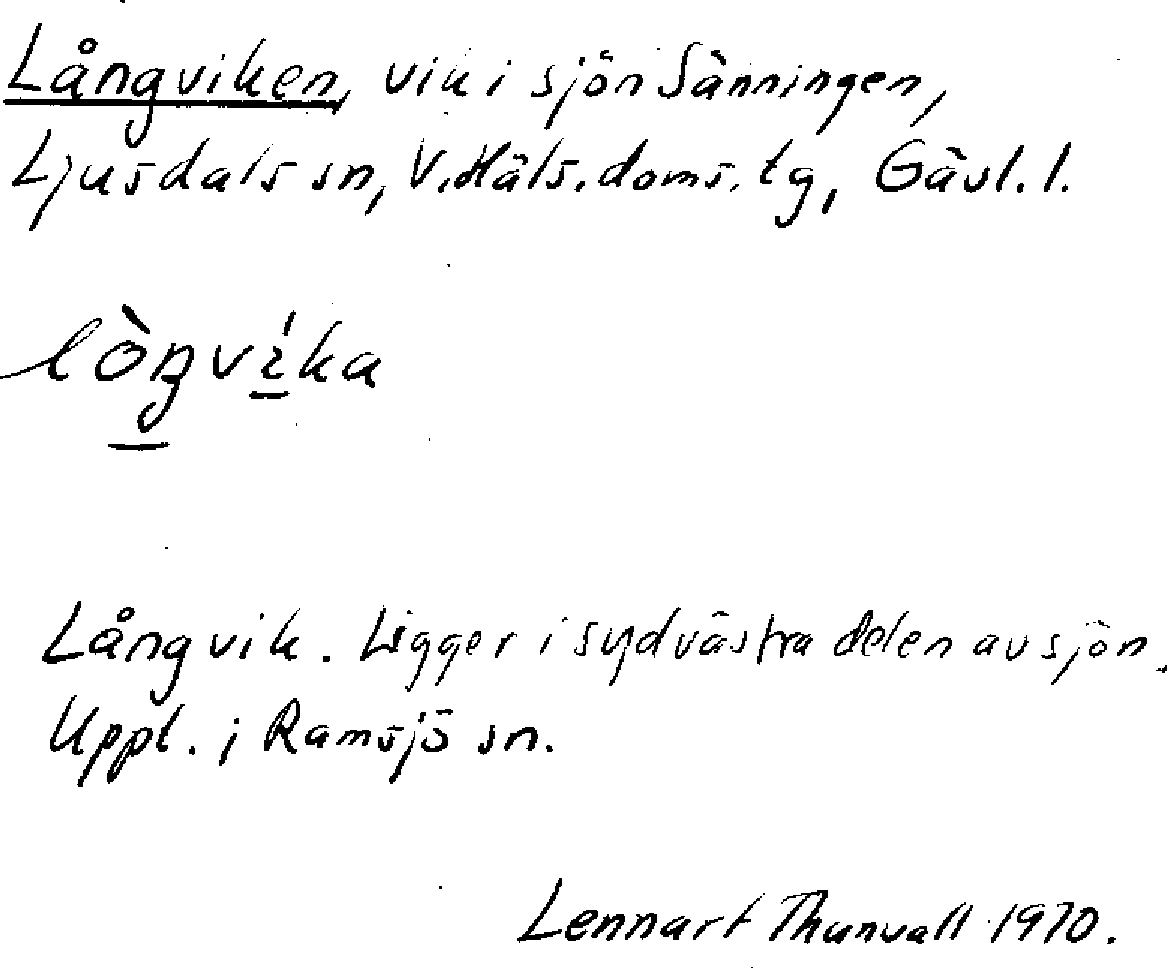 Långviken, vik i sjön Sänningen,
Ljusdals sn, V. Häls. doms. tg, Gävl. l.
lòŋvíka
Långvik. Ligger i sydvästra delen av sjön.
Uppt. i Ramsjö sn.
Lennart Thunvall 1970.